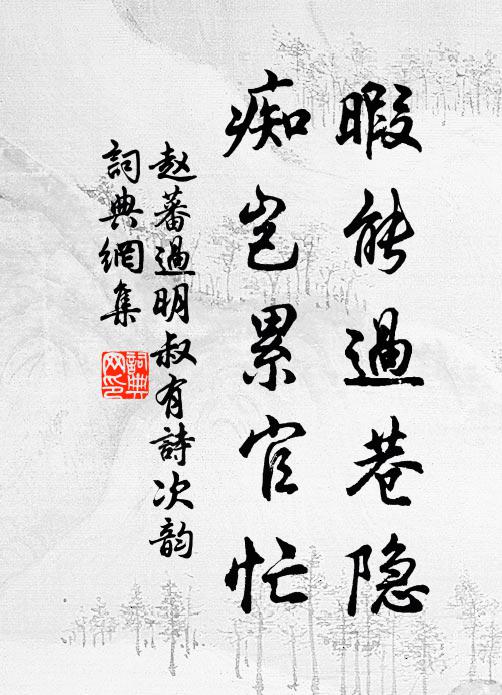 暇能過巷隐
痴岂累官忙
赵蕃過明叔有詩次韵
詞典網集
詞典
网印